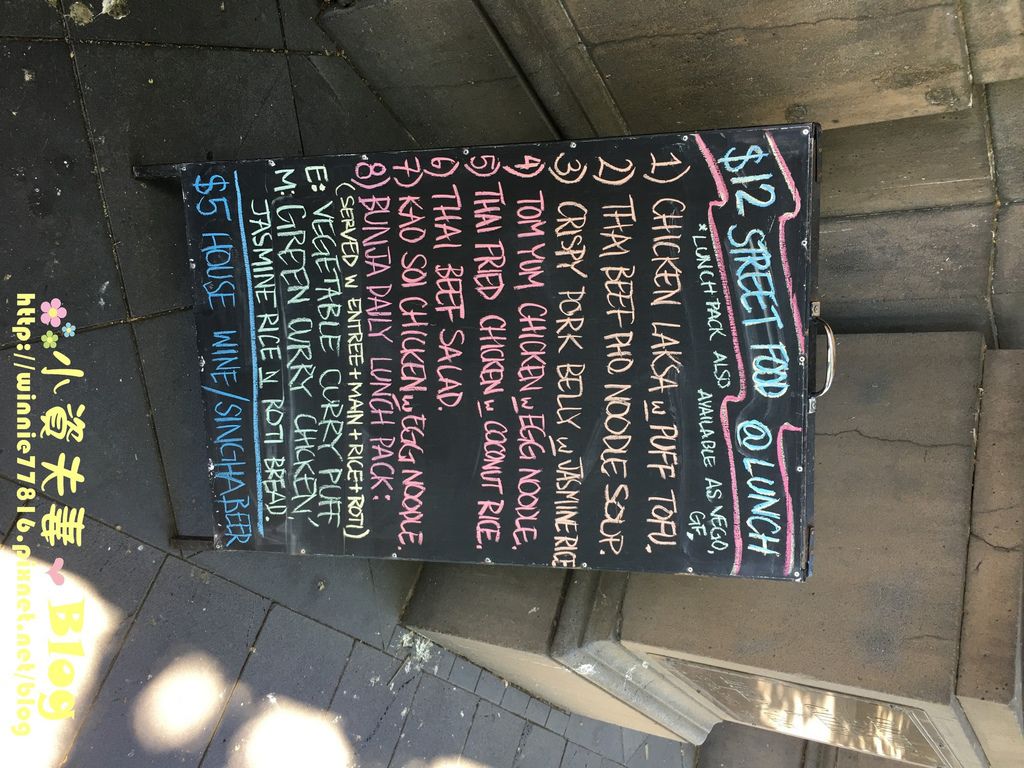 $12 STREET FOOD @ LUNCH
*LUNCH PACK ALSO AVAILABLE AS VEGO, GF,
1) CHICKEN LAKSA w PUFF TOFU.
2) THAI BEEF PHO NOODLE SOUP.
3) CRISPY PORK BELLY w JASMINE RICE
4) TOM YUM CHICKEN w EGG NOODLE.
5) THAI FRIED CHICKEN w COCONUT RICE.
6) THAI BEEF SALAD.
7) KAO SOI CHICKEN w EGG NOODLE.
8) BUNJA DAILY LUNCH PACK:
(SERVED N ENTREE+MAIN+RICE+ROTI)
E: VEGETABLE CURRY PUFF
M: GREEN CURRY CHICKEN,
JASMINE RICE N ROTI BREAD.
$5 HOUSE WINE/SINGHA BEER
小資夫妻 Blog
http://winnie77816.pixnet.net/blog